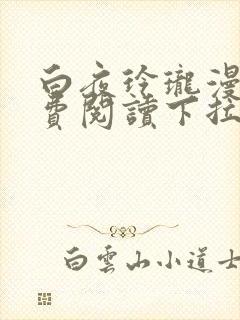 白夜玲瓏漫
費閱讀下拉
白雲山小道士